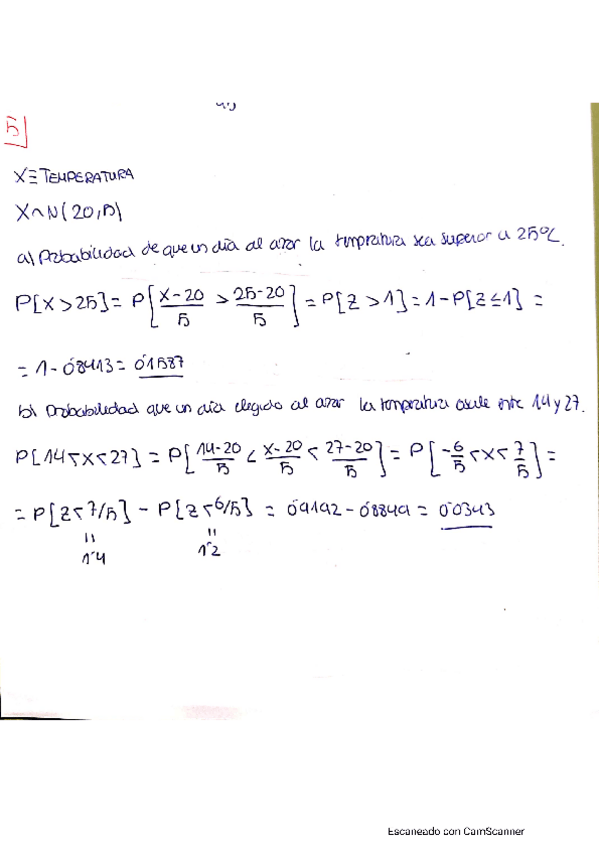 5
X ≡ TEMPERATURA
X ~ N(20,5)
a) Probabilidad de que un día al azar la temperatura sea superior a 25ºC.
P[X > 25] = P[(X-20)/5 > (25-20)/5] = P[Z > 1] = 1 - P[Z ≤ 1] =
= 1 - 0'8413 = 0'1587
b) Probabilidad que un día elegido al azar la temperatura oscile entre 14 y 27.
P[14 < X < 27] = P[(14-20)/5 < (X-20)/5 < (27-20)/5] = P[-6/5 < X < 7/5] =
= P[Z < 7/5] - P[Z < 6/5] = 0'9192 - 0'8849 = 0'0343
= =
1'4 1'2
Escaneado con CamScanner